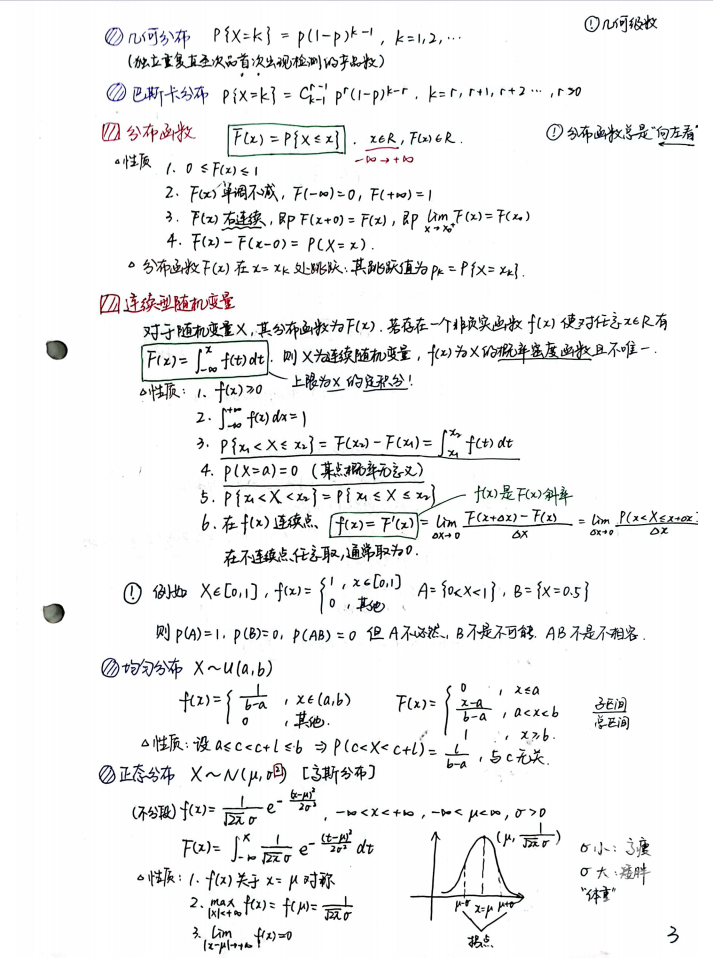 几何分布 P{X=k} = p(1-p)^{k-1}, k=1,2,… ①几何级数
(独立重复直至次品首次出现检测的产品数)
巴斯卡分布 P{X=k} = C_{k-1}^{r-1} p^r(1-p)^{k-r}, k=r, r+1, r+2 …, r>0
分布函数 F(x) = P{X≤x}. x∈R, F(x)∈R. ①分布函数总是“向左看”
-∞→+∞
△性质 1. 0≤F(x)≤1
2. F(x)单调不减, F(-∞)=0, F(+∞)=1
3. F(x)右连续, 即F(x+0)=F(x), 即 lim_{x→x₀⁺} F(x)=F(x₀)
4. F(x)-F(x-0)= P(X=x).
分布函数F(x)在x=x_k处跳跃: 其跳跃值为p_k=P{X=x_k}.
连续型随机变量
对于随机变量X, 其分布函数为F(x). 若存在一个非负实函数f(x)使对任意x∈R有
F(x)=∫_{-∞}^{x} f(t)dt. 则X为连续随机变量, f(x)为X的概率密度函数且不唯一.
上限为x的定积分!
△性质: 1. f(x)≥0
2. ∫_{-∞}^{+∞} f(x)dx=1
3. P{x₁<X≤x₂}=F(x₂)-F(x₁)=∫_{x₁}^{x₂} f(t)dt
4. P(X=a)=0 (某点概率无意义)
5. P{x₁<X<x₂}=P{x₁≤X≤x₂} f(x)是F(x)斜率
6. 在f(x)连续点, f(x)=F'(x)=lim_{Δx→0} \frac{F(x+Δx)-F(x)}{Δx} = lim_{Δx→0} \frac{P(x<X≤x+Δx}{Δx}
在不连续点任意取, 通常取为0.
! 例如 X∈[0,1], f(x)={1, x∈[0,1] A={0<X<1}, B={X=0.5}
0, 其他
则P(A)=1, P(B)=0, P(AB)=0 但A不必然, B不是不可能. AB不是不相容.
均匀分布 X~U(a,b)
f(x)={\frac{1}{b-a}, x∈(a,b) F(x)={0, x≤a
0, 其他. \frac{x-a}{b-a}, a<x<b
1, x≥b.
子区间
总区间
△性质: 设a≤c<c+l≤b ⇒ P(c<X<c+l)=\frac{l}{b-a}, 与c无关.
正态分布 X~N(μ,σ²) [高斯分布]
(不分段) f(x)=\frac{1}{\sqrt{2π}σ} e^{-\frac{(x-μ)²}{2σ²}}, -∞<x<+∞, -∞<μ<∞, σ>0
F(x)=∫_{-∞}^{x} \frac{1}{\sqrt{2π}σ} e^{-\frac{(t-μ)²}{2σ²}} dt (μ, \frac{1}{\sqrt{2π}σ})
σ小: 高瘦
σ大: 矮胖
“体重”
△性质: 1. f(x)关于x=μ对称
2. max_{|x|<+∞} f(x)=f(μ)=\frac{1}{\sqrt{2π}σ}
μ-σ x=μ μ+σ
3. lim_{|x-μ|→+∞} f(x)=0
拐点
3